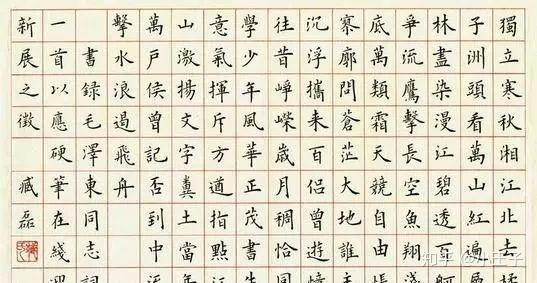 獨立寒秋湘江北去
子洲頭看萬山紅遍
林盡染漫江碧透百舸
爭流鷹擊長空魚翔淺
底萬類霜天競自由悵
寥廓問蒼茫大地誰主
沉浮攜來百侶曾遊憶
往昔崢嶸歲月稠恰同
學少年風華正茂書生
意氣揮斥方遒指點江
山激揚文字糞土當年
萬戶侯曾記否到中流
擊水浪遏飛舟
書錄毛澤東同志詞
一首以應硬筆在綫迎
新展之徵 臧磊
知乎